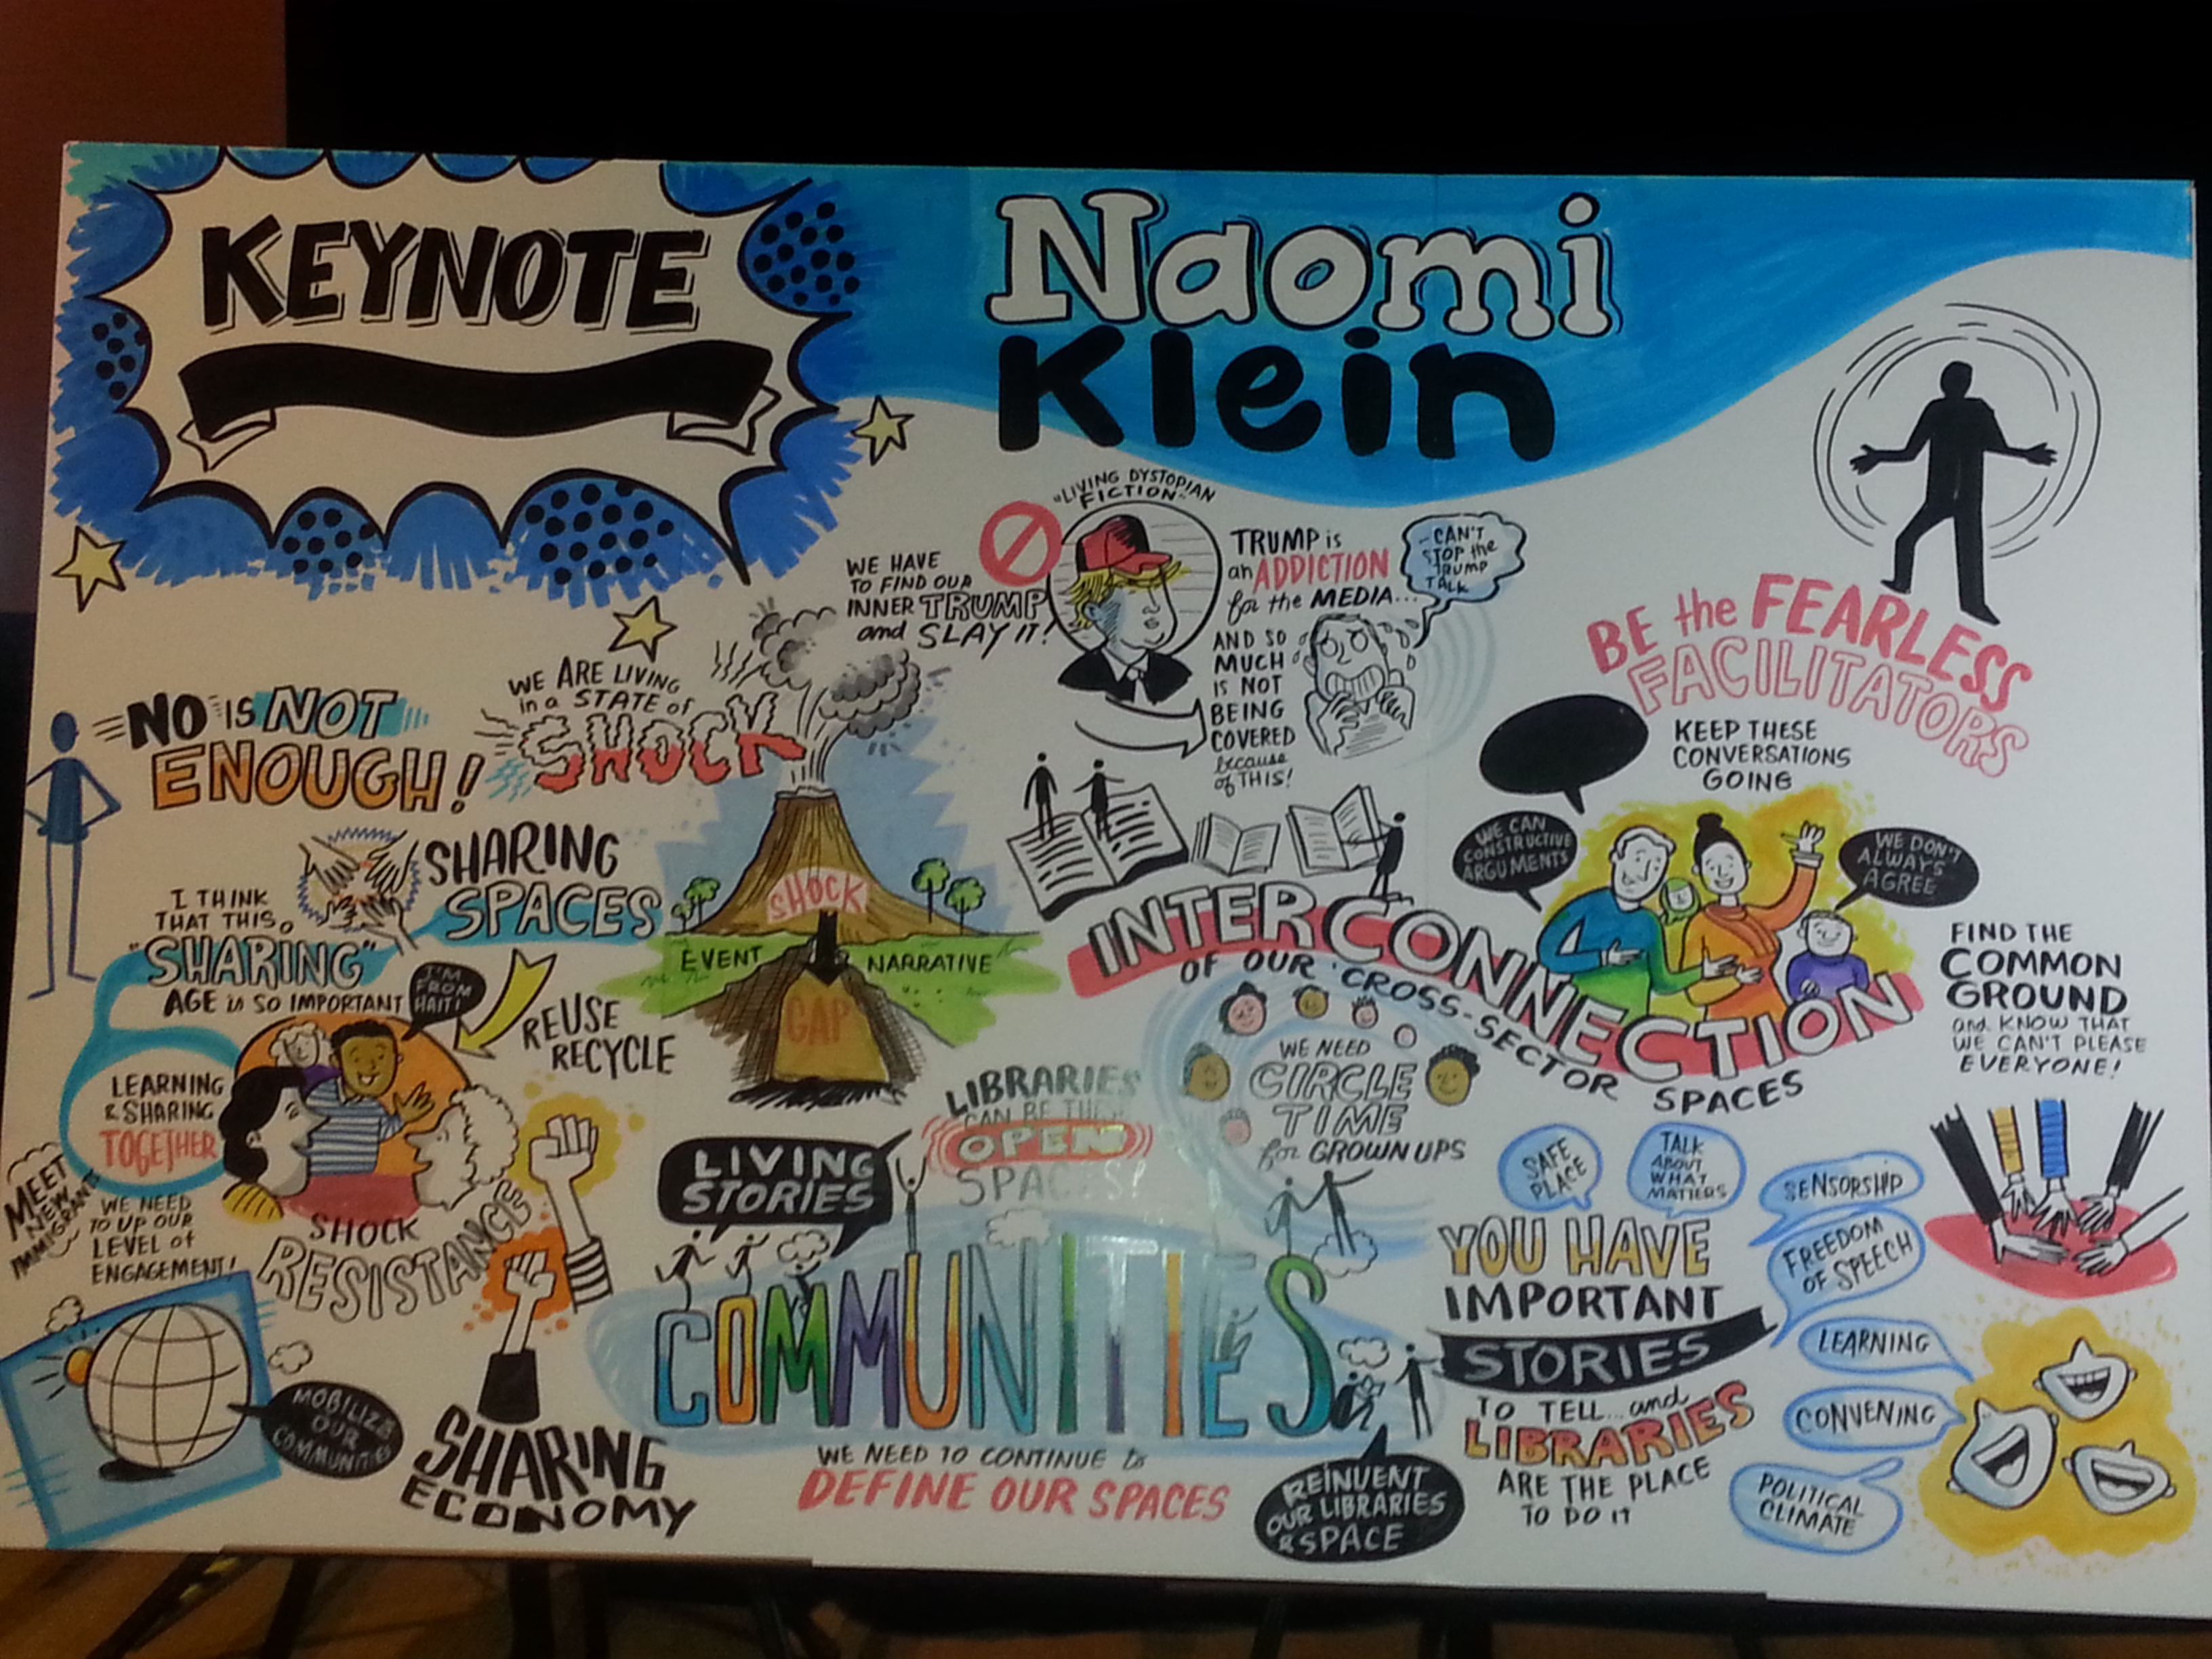 KEYNOTE
Naomi
Klein
"LIVING DYSTOPIAN
FICTION"
WE HAVE
TO FIND OUR
INNER TRUMP
and SLAY IT!
TRUMP is
an ADDICTION
for the MEDIA...
CAN'T
STOP the
TRUMP
TALK
AND SO
MUCH
IS NOT
BEING
COVERED
because
of THIS!
BE the FEARLESS
FACILITATORS
KEEP THESE
CONVERSATIONS
GOING
NO IS NOT
ENOUGH!
WE ARE LIVING
in a STATE of
SHOCK
SHOCK
EVENT
NARRATIVE
GAP
SHARING
SPACES
I THINK
THAT THIS
"SHARING"
AGE is SO IMPORTANT
I'M
FROM
HAITI!
REUSE
RECYCLE
LEARNING
& SHARING
TOGETHER
MEET
NEW
IMMIGRANTS
WE NEED
TO UP OUR
LEVEL of
ENGAGEMENT!
SHOCK
RESISTANCE
MOBILIZE
OUR
COMMUNITIES
SHARING
ECONOMY
WE CAN
CONSTRUCTIVE
ARGUMENTS
WE DON'T
ALWAYS
AGREE
INTERCONNECTION
OF OUR CROSS-SECTOR SPACES
FIND THE
COMMON
GROUND
and KNOW THAT
WE CAN'T PLEASE
EVERYONE!
WE NEED
CIRCLE
TIME
for GROWN UPS
LIBRARIES
CAN BE THESE
OPEN
SPACES!
LIVING
STORIES
COMMUNITIES
WE NEED TO CONTINUE to
DEFINE OUR SPACES
REINVENT
OUR LIBRARIES
& SPACE
SAFE
PLACE
TALK
ABOUT
WHAT
MATTERS
SENSORSHIP
FREEDOM
OF SPEECH
YOU HAVE
IMPORTANT
STORIES
TO TELL... and
LIBRARIES
ARE THE PLACE
TO DO IT
LEARNING
CONVENING
POLITICAL
CLIMATE